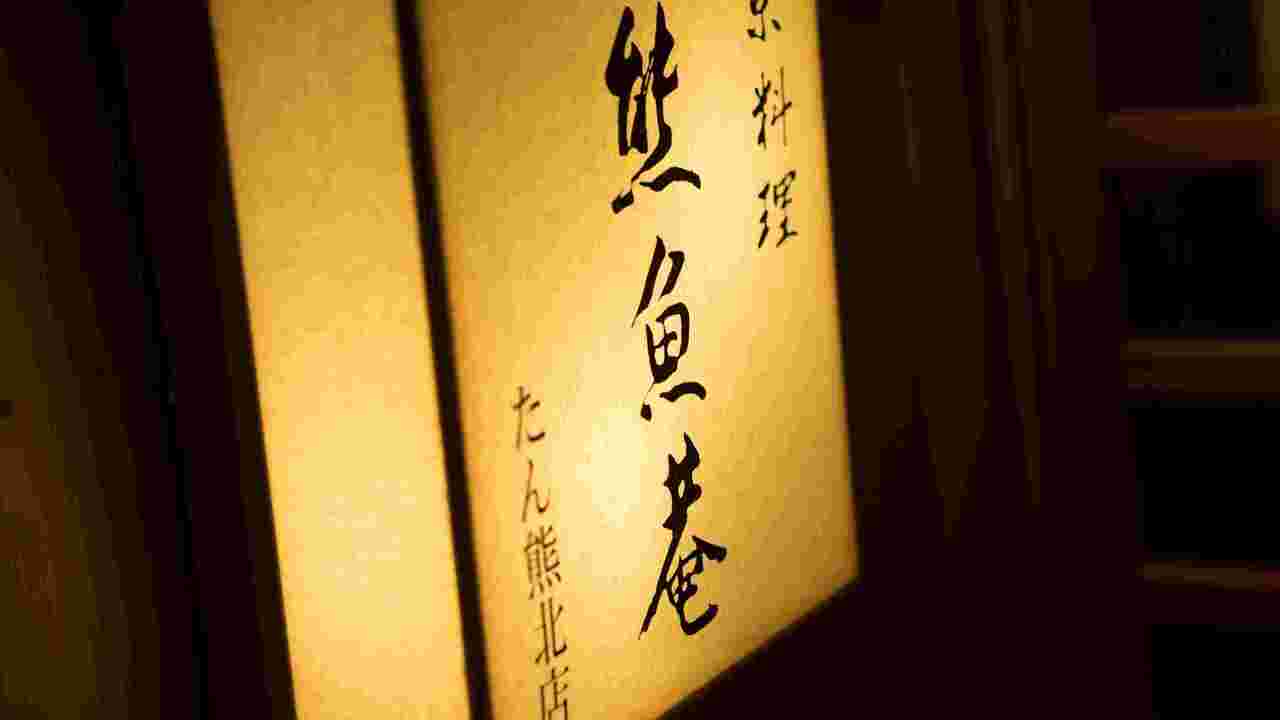 京料理
熊魚菴
たん熊北店